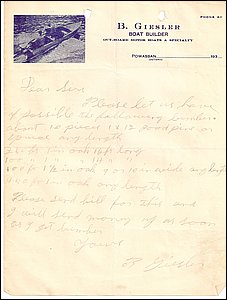 PHONE 41
B. GIESLER
BOAT BUILDER
OUT-BOARD MOTOR BOATS A SPECIALTY
POWASSAN, 193
ONTARIO
Dear Sir
Please let us have
if possible the following lumber
about 10 pieces 1 x 12 good pine or
spruce any length
oak 16 ft long
100
100 ft 1 1/2 in oak 9 or 10 in wide any length
any length
Please send bill for this and
I will send money as soon
as I get lumber
Yours
B Giesler